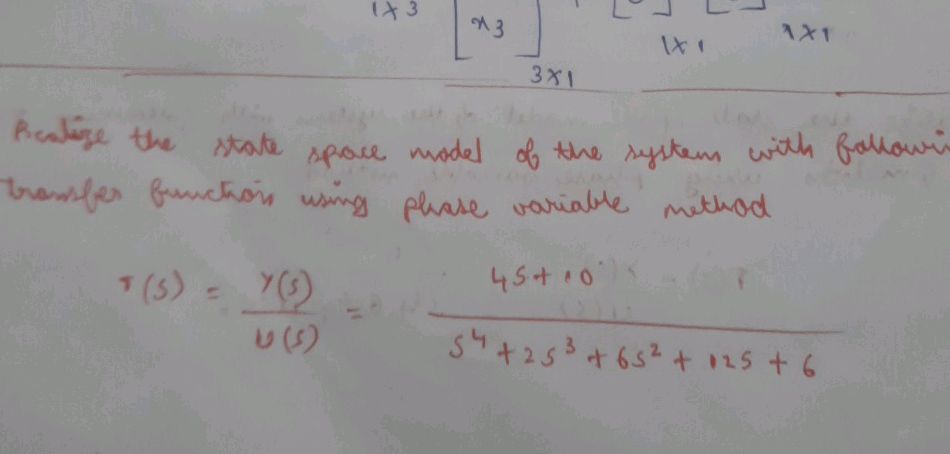 1X3
x3
3X1
1X1
1X1
Realize the state space model of the system with followin
transfer function using phase variable method
T(S) = Y(S) / U(S) = 4S+10 / S⁴ + 2S³ + 6S² + 12S + 6